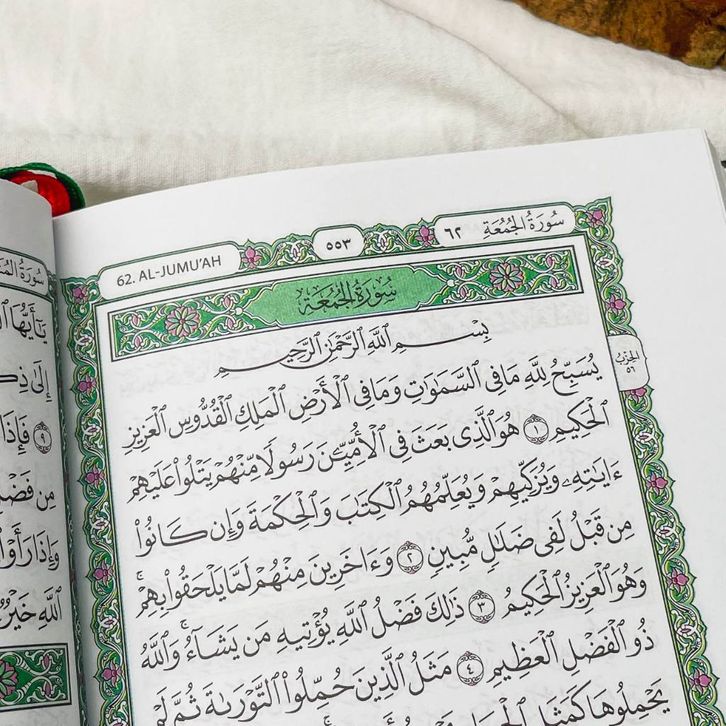 سُورَةُ الجُمُعَةِ ٦٢
٥٥٣
62. AL-JUMU'AH
سُورَةُ الجُمُعَةِ
بِسْمِ ٱللَّهِ ٱلرَّحْمَٰنِ ٱلرَّحِيمِ
يُسَبِّحُ لِلَّهِ مَا فِى ٱلسَّمَٰوَٰتِ وَمَا فِى ٱلْأَرْضِ ٱلْمَلِكِ ٱلْقُدُّوسِ ٱلْعَزِيزِ
ٱلْحَكِيمِ ١ هُوَ ٱلَّذِى بَعَثَ فِى ٱلْأُمِّيِّـۧنَ رَسُولًا مِّنْهُمْ يَتْلُوا۟ عَلَيْهِمْ
ءَايَٰتِهِۦ وَيُزَكِّيهِمْ وَيُعَلِّمُهُمُ ٱلْكِتَٰبَ وَٱلْحِكْمَةَ وَإِن كَانُوا۟
مِن قَبْلُ لَفِى ضَلَٰلٍ مُّبِينٍ ٢ وَءَاخَرِينَ مِنْهُمْ لَمَّا يَلْحَقُوا۟ بِهِمْ ۚ
وَهُوَ ٱلْعَزِيزُ ٱلْحَكِيمُ ٣ ذَٰلِكَ فَضْلُ ٱللَّهِ يُؤْتِيهِ مَن يَشَآءُ ۚ وَٱللَّهُ
ذُو ٱلْفَضْلِ ٱلْعَظِيمِ ٤ مَثَلُ ٱلَّذِينَ حُمِّلُوا۟ ٱلتَّوْرَىٰةَ ثُمَّ لَمْ
يَحْمِلُوهَا كَمَثَلِ
الحزب
٥٦
يَٰٓأَيُّهَا
إِلَىٰ
٩ فَإِذَا
مِن فَضْلِ
وَإِذَا رَأَوْا۟
ٱللَّهِ خَيْرٌ